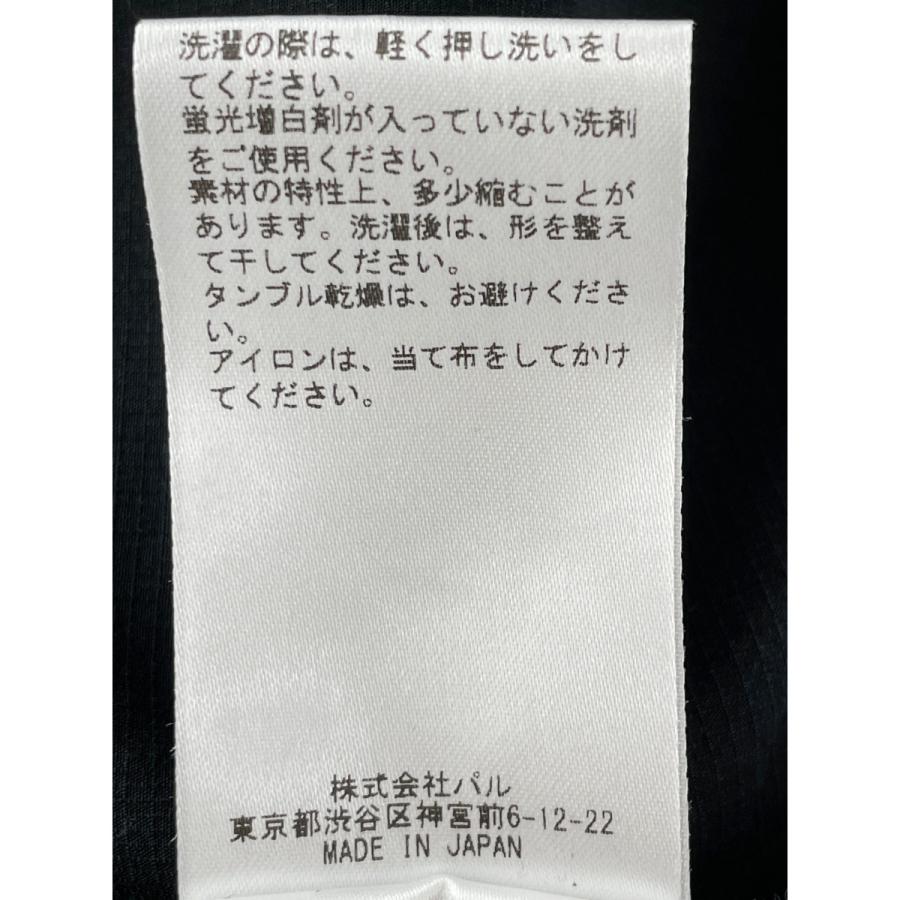 洗濯の際は、軽く押し洗いをし
てください。
蛍光増白剤が入っていない洗剤
をご使用ください。
素材の特性上、多少縮むことが
あります。洗濯後は、形を整え
て干してください。
タンブル乾燥は、お避けくださ
い。
アイロンは、当て布をしてかけ
てください。
株式会社パル
東京都渋谷区神宮前6-12-22
MADE IN JAPAN